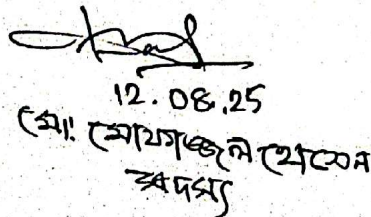 12.08.25
মো: মোফাজ্জল হোসেন
সদস্য